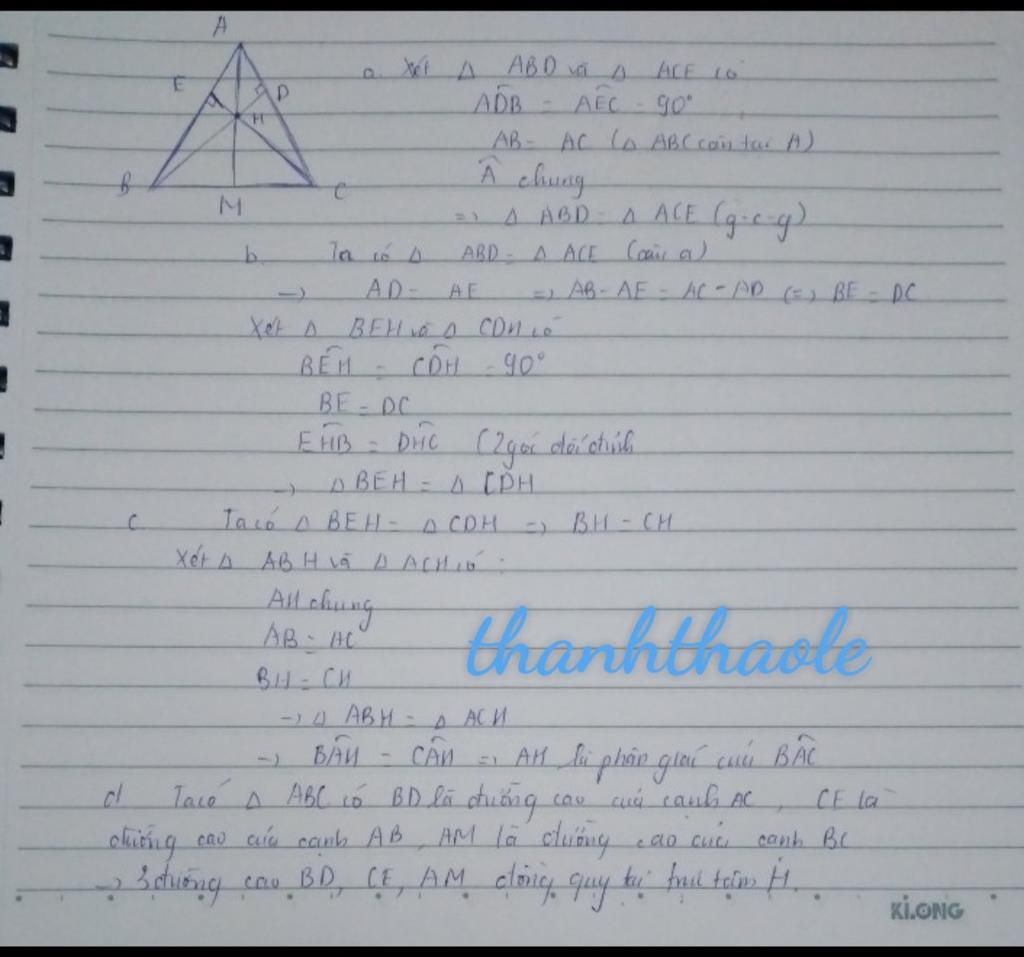 A
E
D
H
B
C
M
a. Xét Δ ABD và Δ ACE có
ADB̂ = AÊC = 90°
AB = AC (Δ ABC cân tại A)
Â chung
=> Δ ABD = Δ ACE (g-c-g)
b. Ta có Δ ABD = Δ ACE (câu a)
-> AD = AE => AB - AE = AC - AD (=) BE = DC
Xét Δ BEH và Δ CDH có
BÊH = CD̂H = 90°
BE = DC
EĤB = DĤC (2 góc đối đỉnh
-> Δ BEH = Δ CDH
c Ta có Δ BEH = Δ CDH => BH = CH
Xét Δ ABH và Δ ACH có :
AH chung
AB = AC
BH = CH
-> Δ ABH = Δ ACH
-> BÂH = CÂH => AH là phân giác của BÂC
d Ta có Δ ABC có BD là đường cao của cạnh AC, CE là
đường cao của cạnh AB, AM là đường cao của cạnh BC
-> 3 đường cao BD, CE, AM đồng quy tại trực tâm H.
thanhthaole
KiLONG